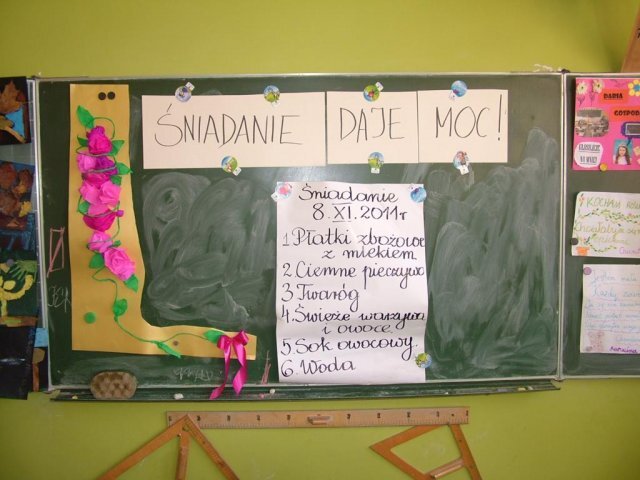 ŚNIADANIE DAJE MOC!
Śniadanie
8.XI.2011r
1. Płatki zbożowe
z mlekiem
2. Ciemne pieczywo
3. Twaróg
4. Świeże warzywa
i owoce
5. Sok owocowy.
6. Woda
DARIA
GOSPODA
KOCHAM